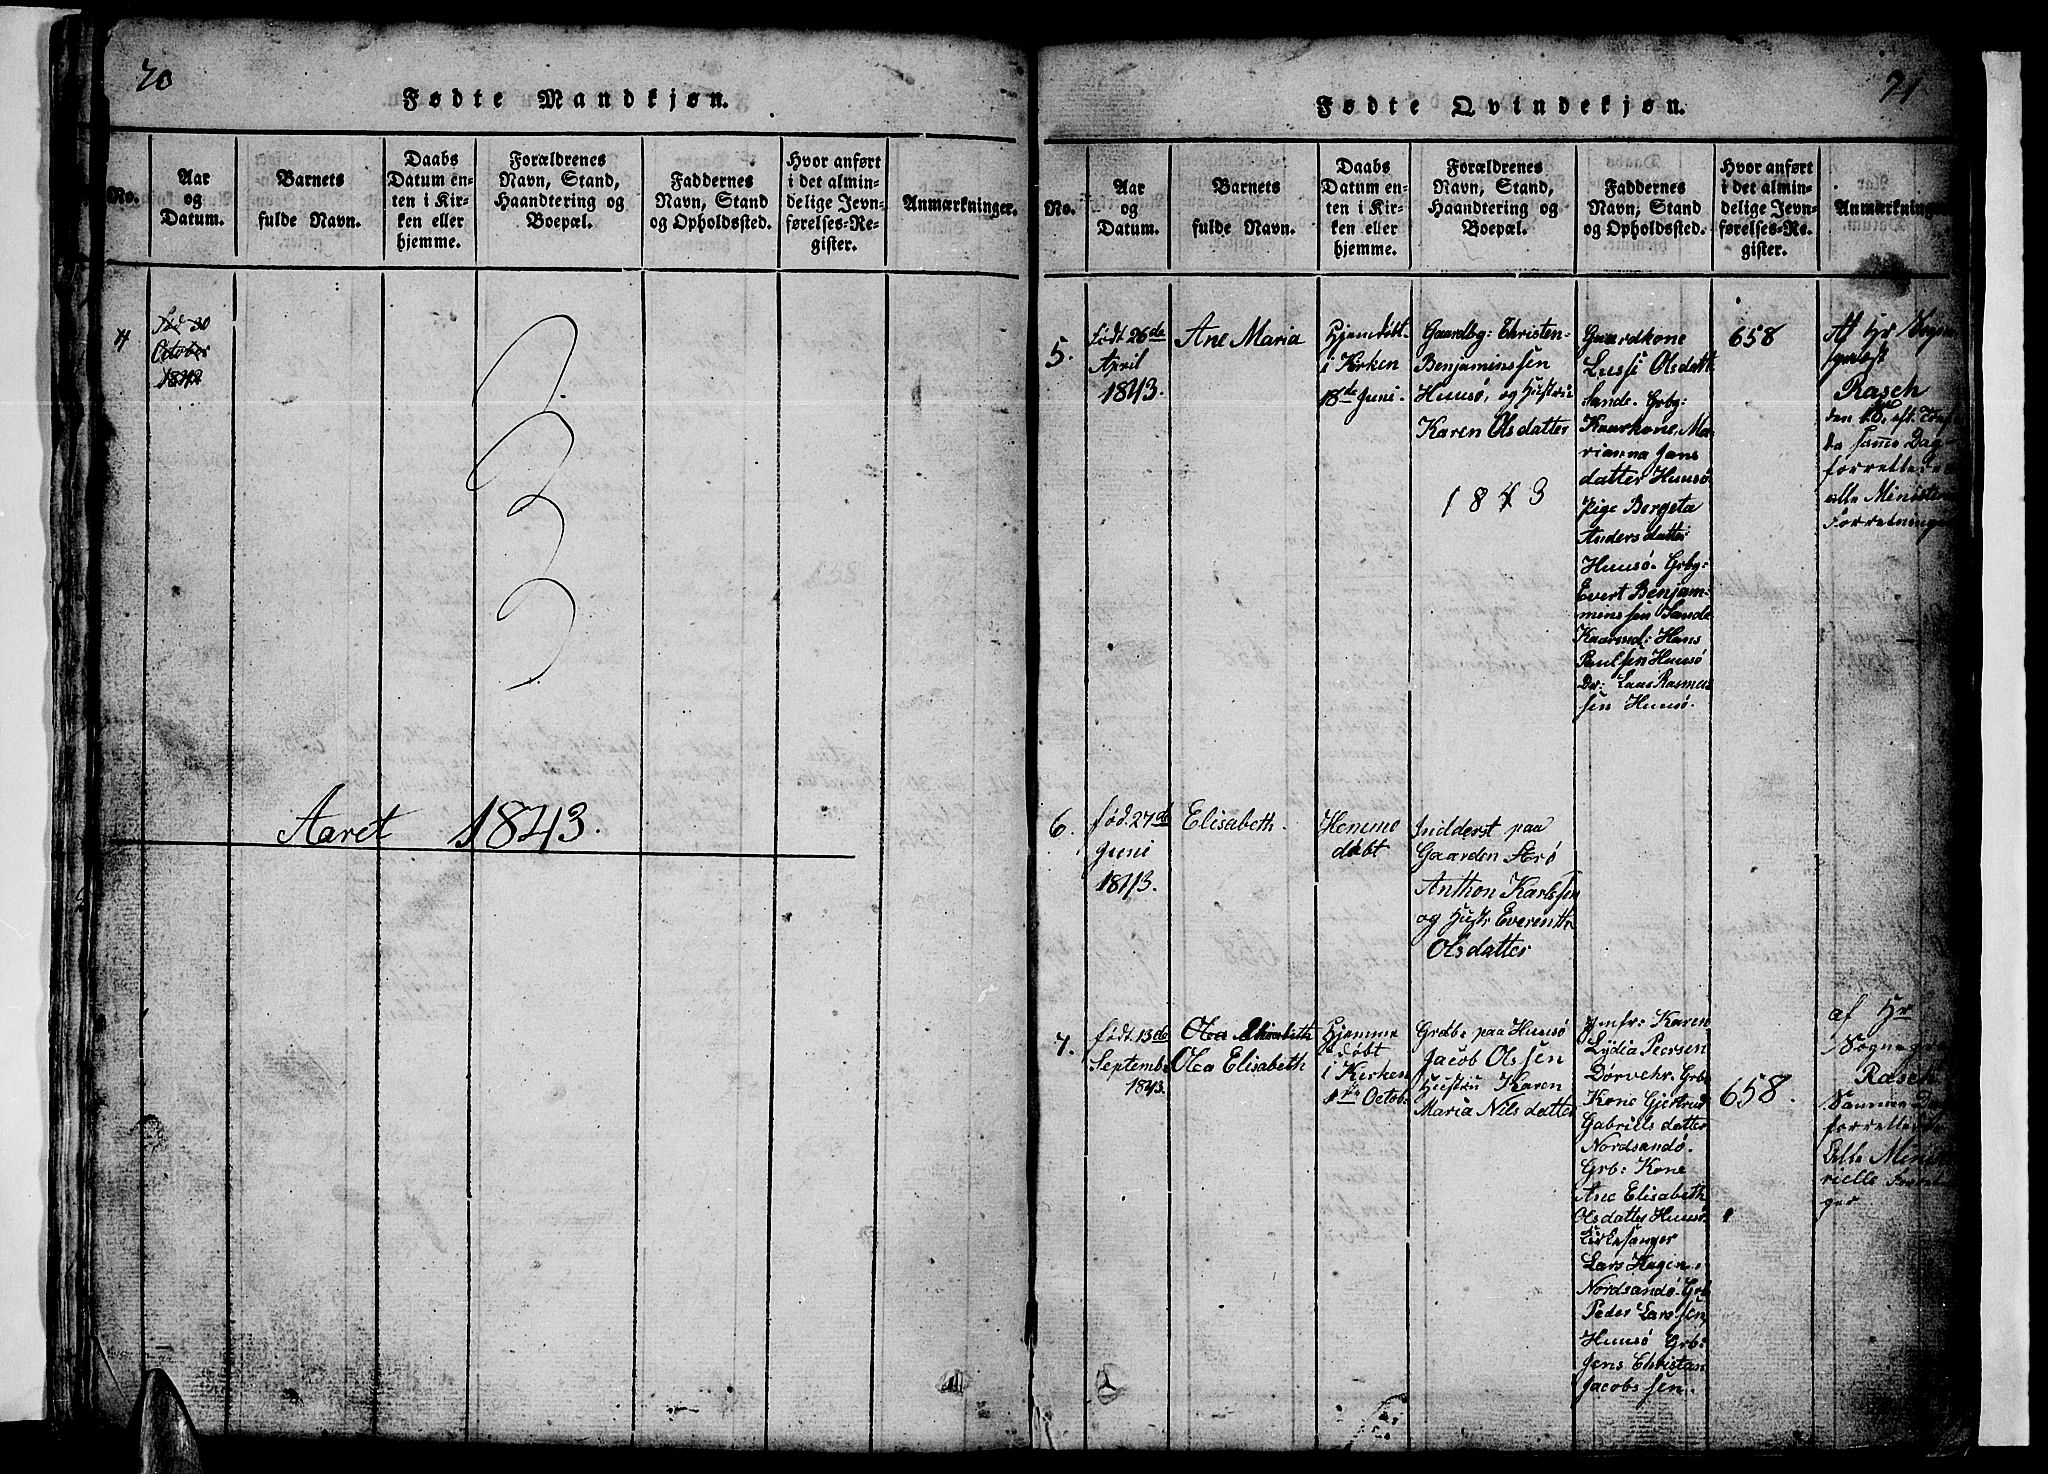 70
Fødte Mandkjøn.
No.
Aar
og
Datum.
Barnets
fulde Navn.
Daabs
Datum en-
ten i Kir-
ken eller
hjemme.
Forældrenes
Navn, Stand,
Haandtering og
Boepæl.
Faddernes
Navn, Stand
og Opholdssted.
Hvor anført
i det almin-
delige Jevn-
førelses-Re-
gister.
Anmærkninger.
Fød 30
October
1842
Aaret 1843.
71
Fødte Qvindekjøn.
No.
Aar
og
Datum.
Barnets
fulde Navn.
Daabs
Datum en-
ten i Kir-
ken eller
hjemme.
Forældrenes
Navn, Stand,
Haandtering og
Boepæl.
Faddernes
Navn, Stand
og Opholdssted.
Hvor anført
i det almin-
delige Jevn-
førelses-Re-
gister.
Anmærkninge
5.
født 26de
April
1843.
Ane Maria
Hjemdøbt
i Kirken
18de Juni.
Gaardbg: Christen
Benjaminssen
Huusø, og Hustru
Karen Olsdatter
1843
Gaardkone
Lussi Olsdatt
Sande. Grbg:
Kaarkone, Ma-
rianna Jans
datter Huusø
Pige Bergeta
Anders datter
Huusø. Grbg:
Evert Benjam-
minssen Sande
Kaarmd: Hans
Paulsen Huusø
Dr: Laas Rasmus
sen Huusø.
658
Af Hr Sogne
Rasch
samme Dag
forrettede
alle Ministe
Forretninger
6.
fød. 27de
Juni
1843.
Elisabeth.
Hemme
døbt
Indderst paa
Gaarden Sterø
Anthon Karlssen
og Hustr Everenth
Olsdatter
7.
født 13de
Septembr
1843.
Olea Elisabeth
Olea Elisabeth
Hjemme
døbt,
i Kirken
1te Octob:
Grdb: paa Huusø
Jacob Olssen
Hustru Karen
Maria Nils datter
Jmfr: Karen
Lÿdia Peersen
Dørvehr. Grb
Kone Gjertrud
Gabriels datter
Nordsandø.
Grb: Kone
Ane Elisabeth
Olsdatter Huusø
Kirkesanger
Lars Hagen
Nordsandø. Grb
Peder Larssen,
Huusø Grb:
Jens Christan
Jacobssen.
658.
af Hr
Sognepr
Rasch
Samme Dag
forrettede
alle Ministe
rielle Forretnin
ger